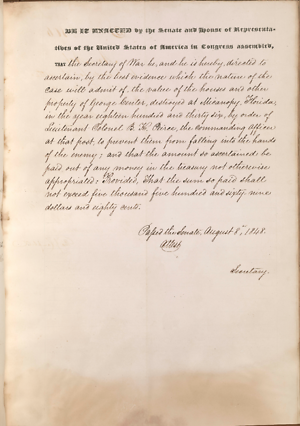 BE IT ENACTED by the Senate and House of Representa-
tives of the United States of America in Congress assembled,
THAT the Secretary of War be, and he is hereby, directed to
ascertain, by the best evidence which the nature of the
case will admit of, the value of the house and other
property of George Center, destroyed at Micanopy, Florida,
in the year eighteen hundred and thirty six, by order of
Lieutenant Colonel B. K. Pierce, the commanding officer
at that post, to prevent them from falling into the hands
of the enemy; and that the amount so ascertained be
paid out of any money in the treasury not otherwise
appropriated: Provided, That the sum so paid shall
not exceed five thousand five hundred and sixty nine
dollars and eighty cents.
Passed the Senate, August 8, 1848.
Attest,
Secretary.